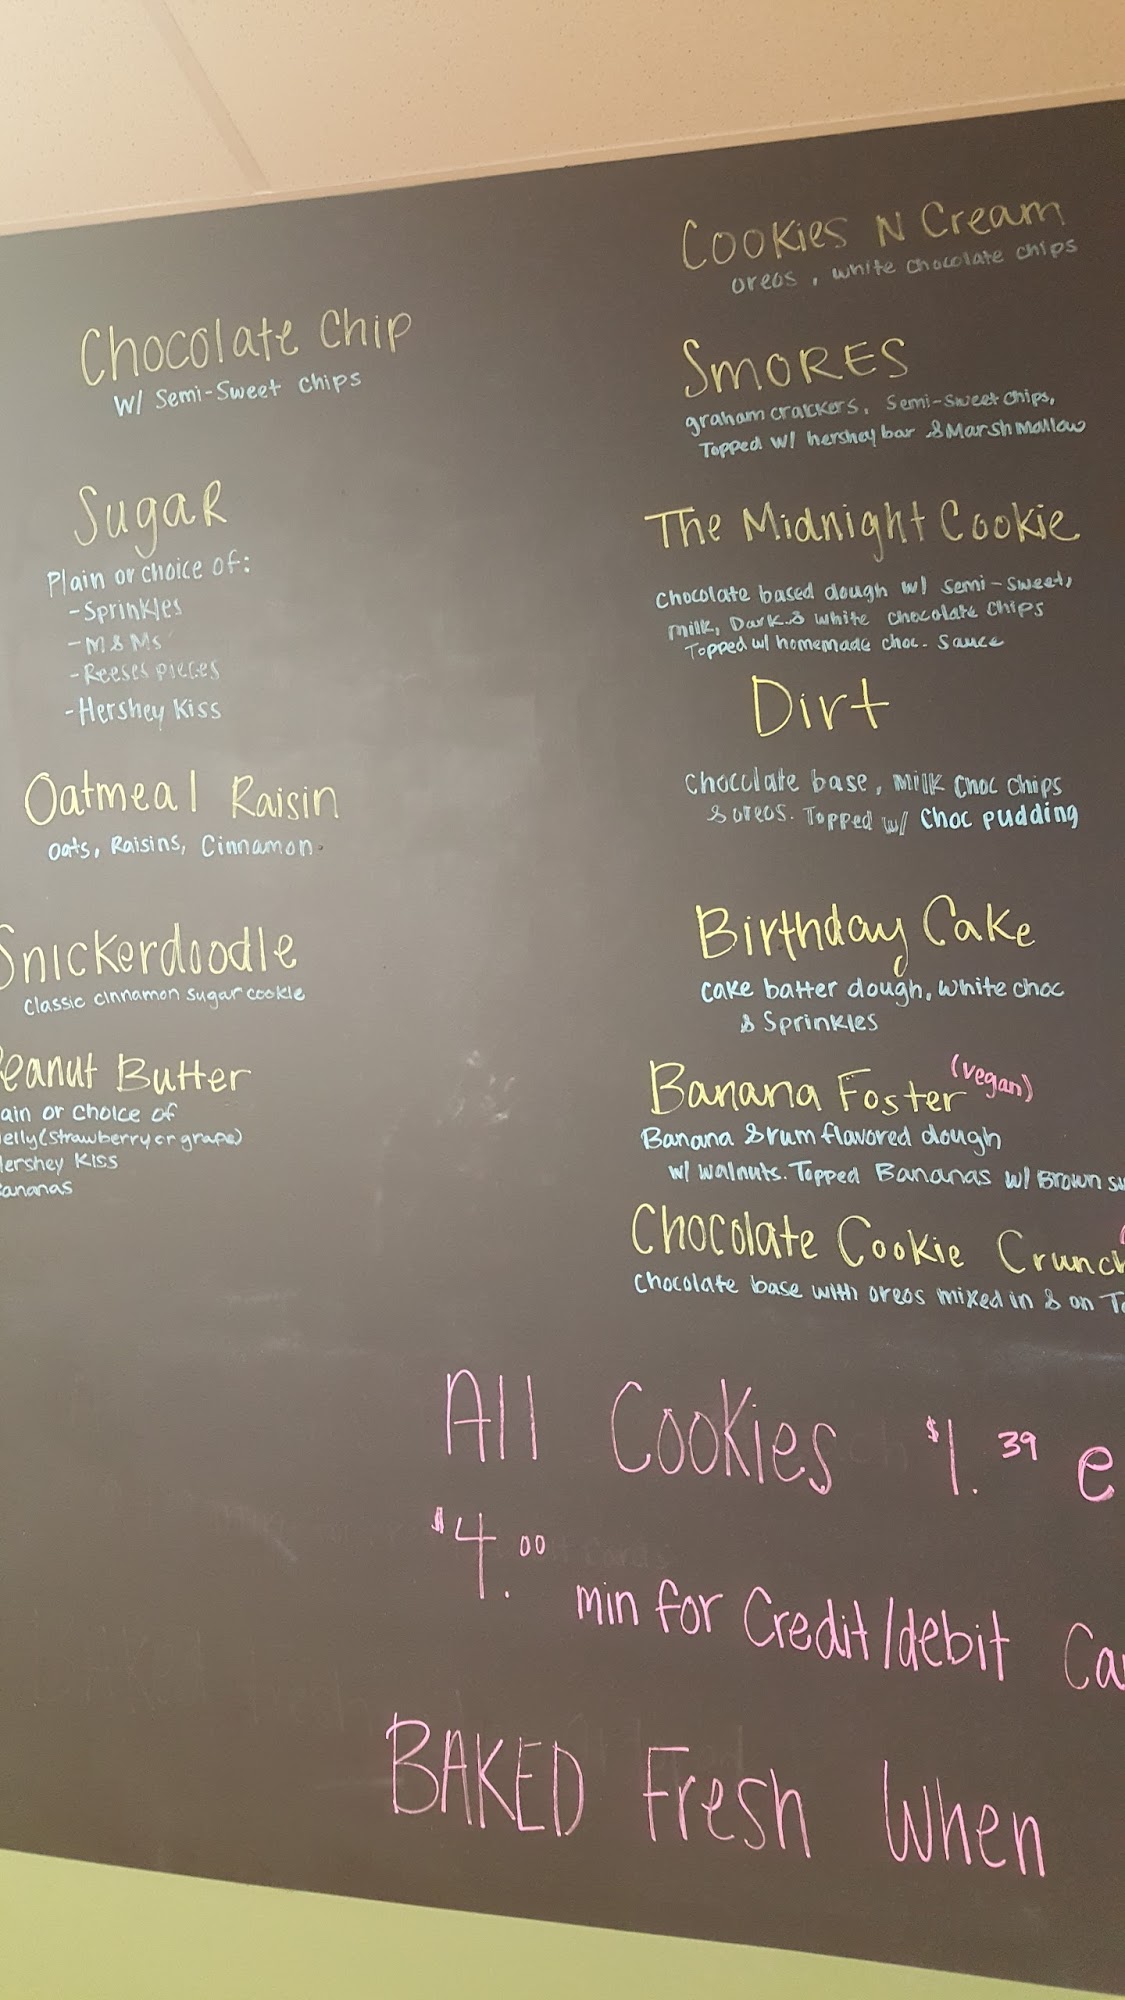 Chocolate Chip
w/ Semi-Sweet Chips
Sugar
Plain or choice of:
-Sprinkles
-M&Ms
-Reeses pieces
-Hershey Kiss
Oatmeal Raisin
oats, Raisins, Cinnamon
Snickerdoodle
Classic cinnamon sugar cookie
eanut Butter
ain or choice of
elly (strawberry or grape)
ershey Kiss
ananas
Cookies N Cream
oreos, white chocolate chips
SmORES
graham crackers, semi-sweet chips,
Topped w/ hershey bar & Marshmallow
The Midnight Cookie
Chocolate based dough w/ semi-sweet,
milk, Dark & white chocolate chips
Topped w/ homemade choc. sauce
Dirt
chocolate base, milk choc chips
& oreos. Topped w/ choc pudding
Birthday Cake
cake batter dough, white choc
& sprinkles
Banana Foster (vegan)
Banana & rum flavored dough
w/ walnuts. Topped Bananas w/ Brown su
Chocolate Cookie Crunch
chocolate base with oreos mixed in & on To
All Cookies $1.39 e
$4.00 min for Credit/debit Ca
BAKED Fresh When